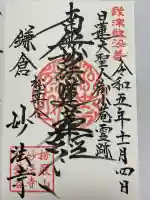 令和五年十一月四日
日蓮大聖人御小庵霊跡
南無妙法蓮華経
鎌倉
松葉谷
妙法寺